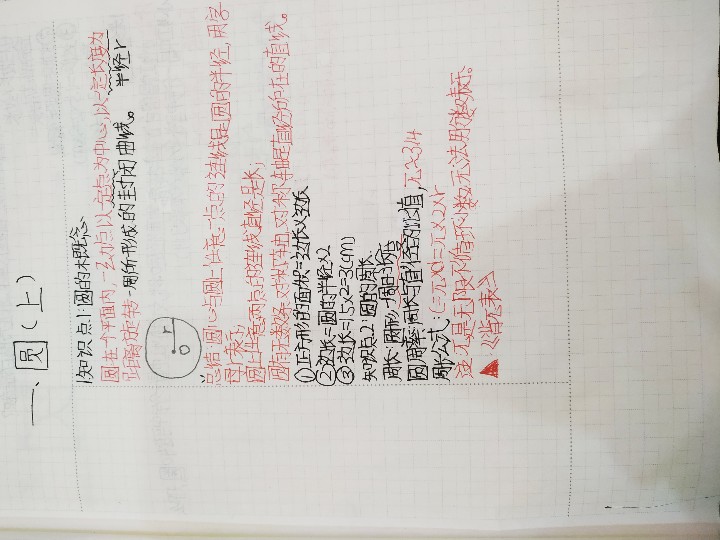 一、圆(上)
知识点1:圆的本概念
圆在一个平面内,一动点以一定点为中心,以一定长度为
距离旋转一周所形成的封闭曲线。 半径r
o r
总结:圆心与圆上任意一点的连线是圆的半径,用字
母r表示;
圆上任意两点的连线,直径是长;
圆有无数条对称轴,对称轴是直径所在的直线。
①正方形的面积=边长×边长
②边长=圆的半径×2
③边长=1.5×2=3(cm)
知识点2:圆的周长
周长:圆形一周的
圆周率:周长与直径的比值,π≈3.14
周长公式:C=π×d=π×2×r
注:π是无限不循环小数,无法用分数表示。
▲:《背π表》